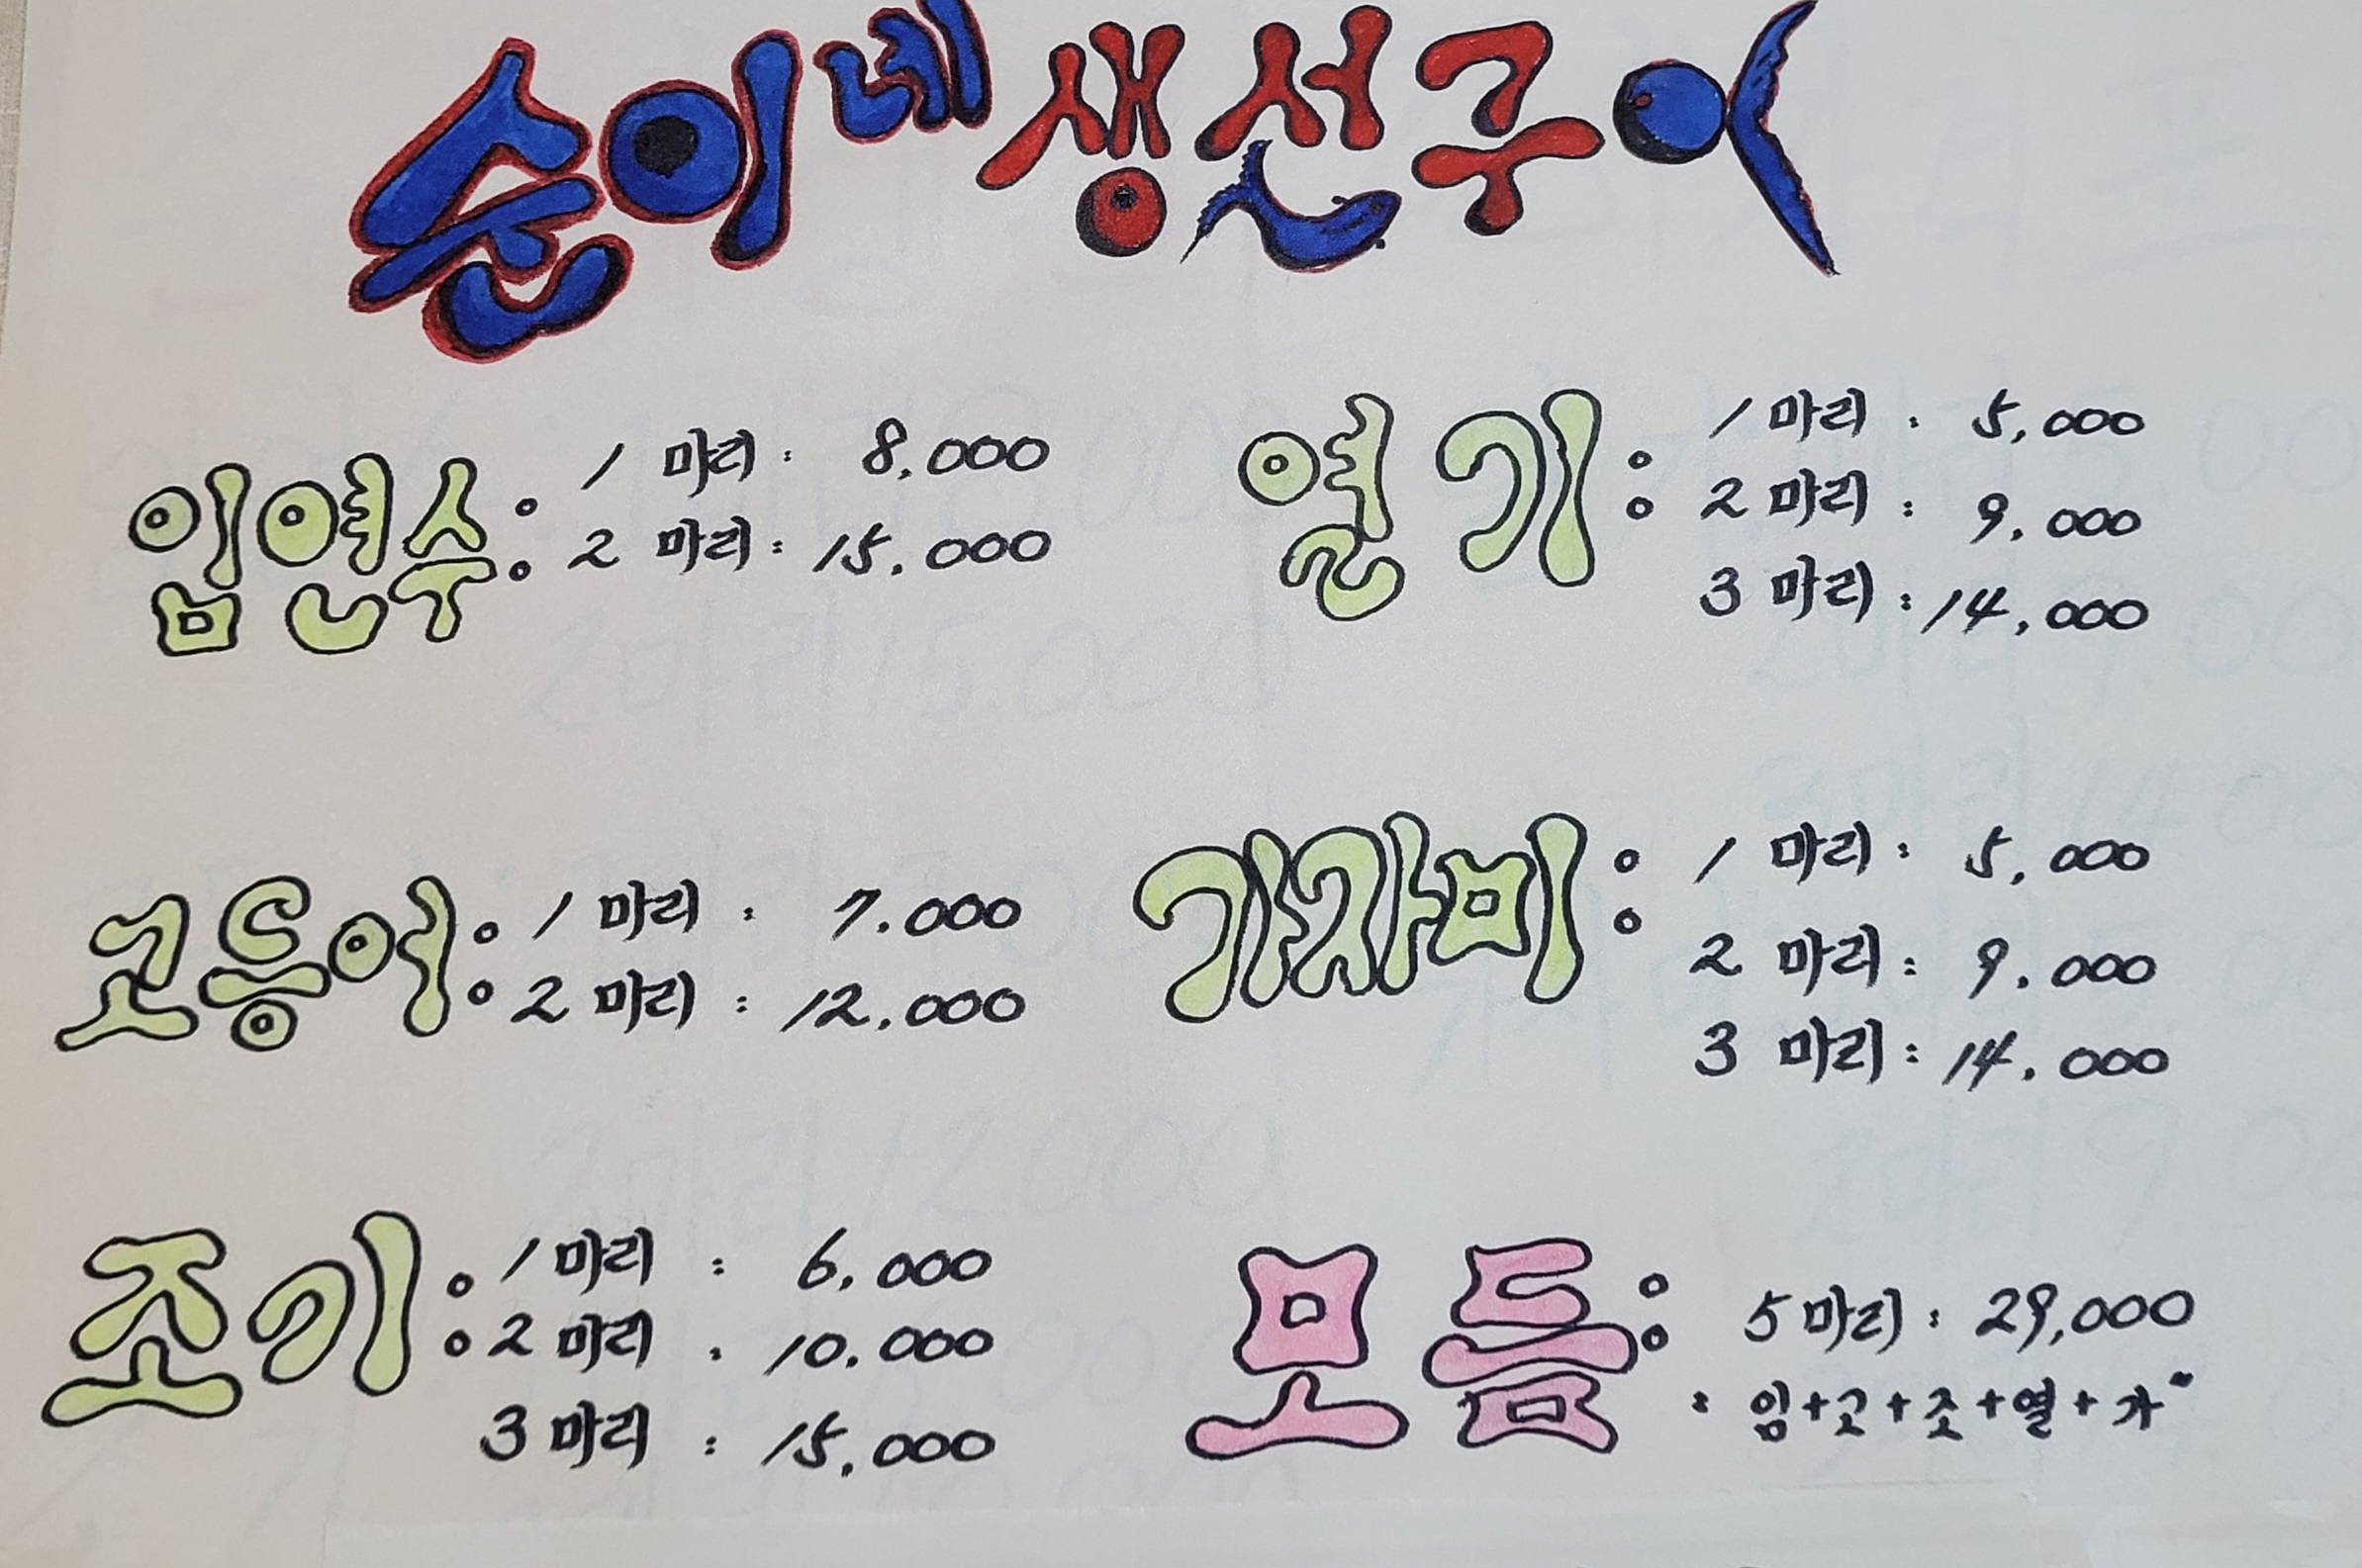 순이네 생선구이
임연수 : 1 마리 : 8,000
2 마리 : 15,000
고등어 : 1 마리 : 7.000
2 마리 : 12,000
조기 : 1 마리 : 6,000
2 마리 : 10.000
3 마리 : 15,000
열기 : 1 마리 : 5,000
2 마리 : 9,000
3 마리 : 14,000
가자미 : 1 마리 : 5,000
2 마리 : 9.000
3 마리 : 14.000
모듬 : 5 마리 : 29,000
: 임+고+조+열+가